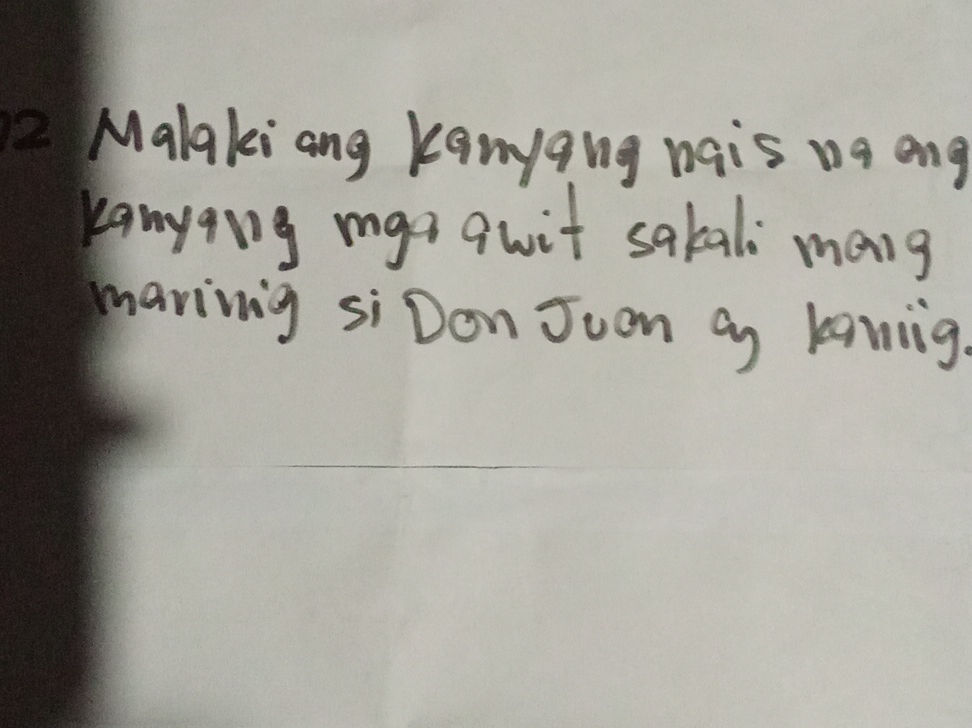 02 Malaki ang kanyang nais na ang
kanyang mga awit sakali mang
marinig si Don Juan ay kaniig.